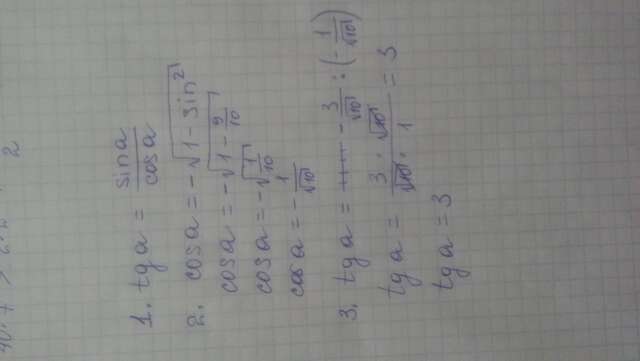 1. tg a = sin a / cos a
2. cos a = -√(1 - sin²)
cos a = -√(1 - 9/10)
cos a = -√(1/10)
cos a = - 1/√10
3. tg a = - 3/√10 : (- 1/√10)
tg a = (3 · √10)/(√10 · 1) = 3
tg a = 3